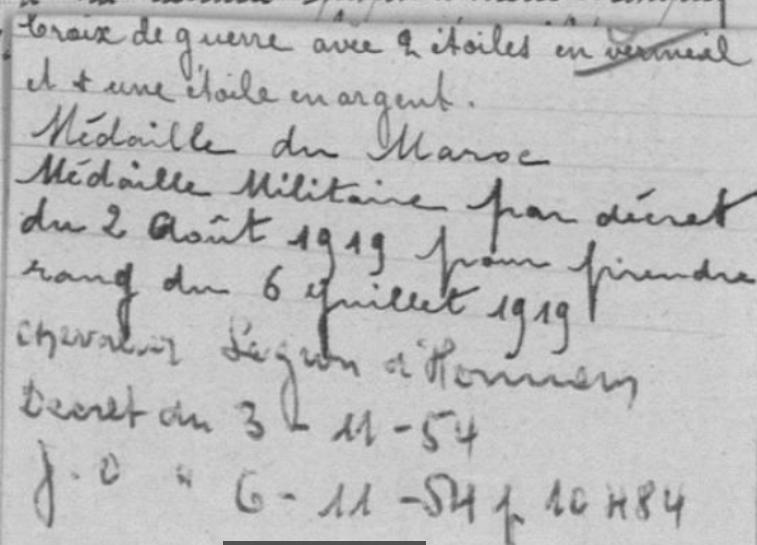 Croix de guerre avec 2 étoiles en vermeil
et + une étoile en argent.
Médaille du Maroc
Médaille Militaire par décret
du 2 Août 1919 pour prendre
rang du 6 Juillet 1919
Chevalier Légion d'Honneur
Décret du 3 - 11 - 54
J.O " 6 - 11 - 54 p 10484